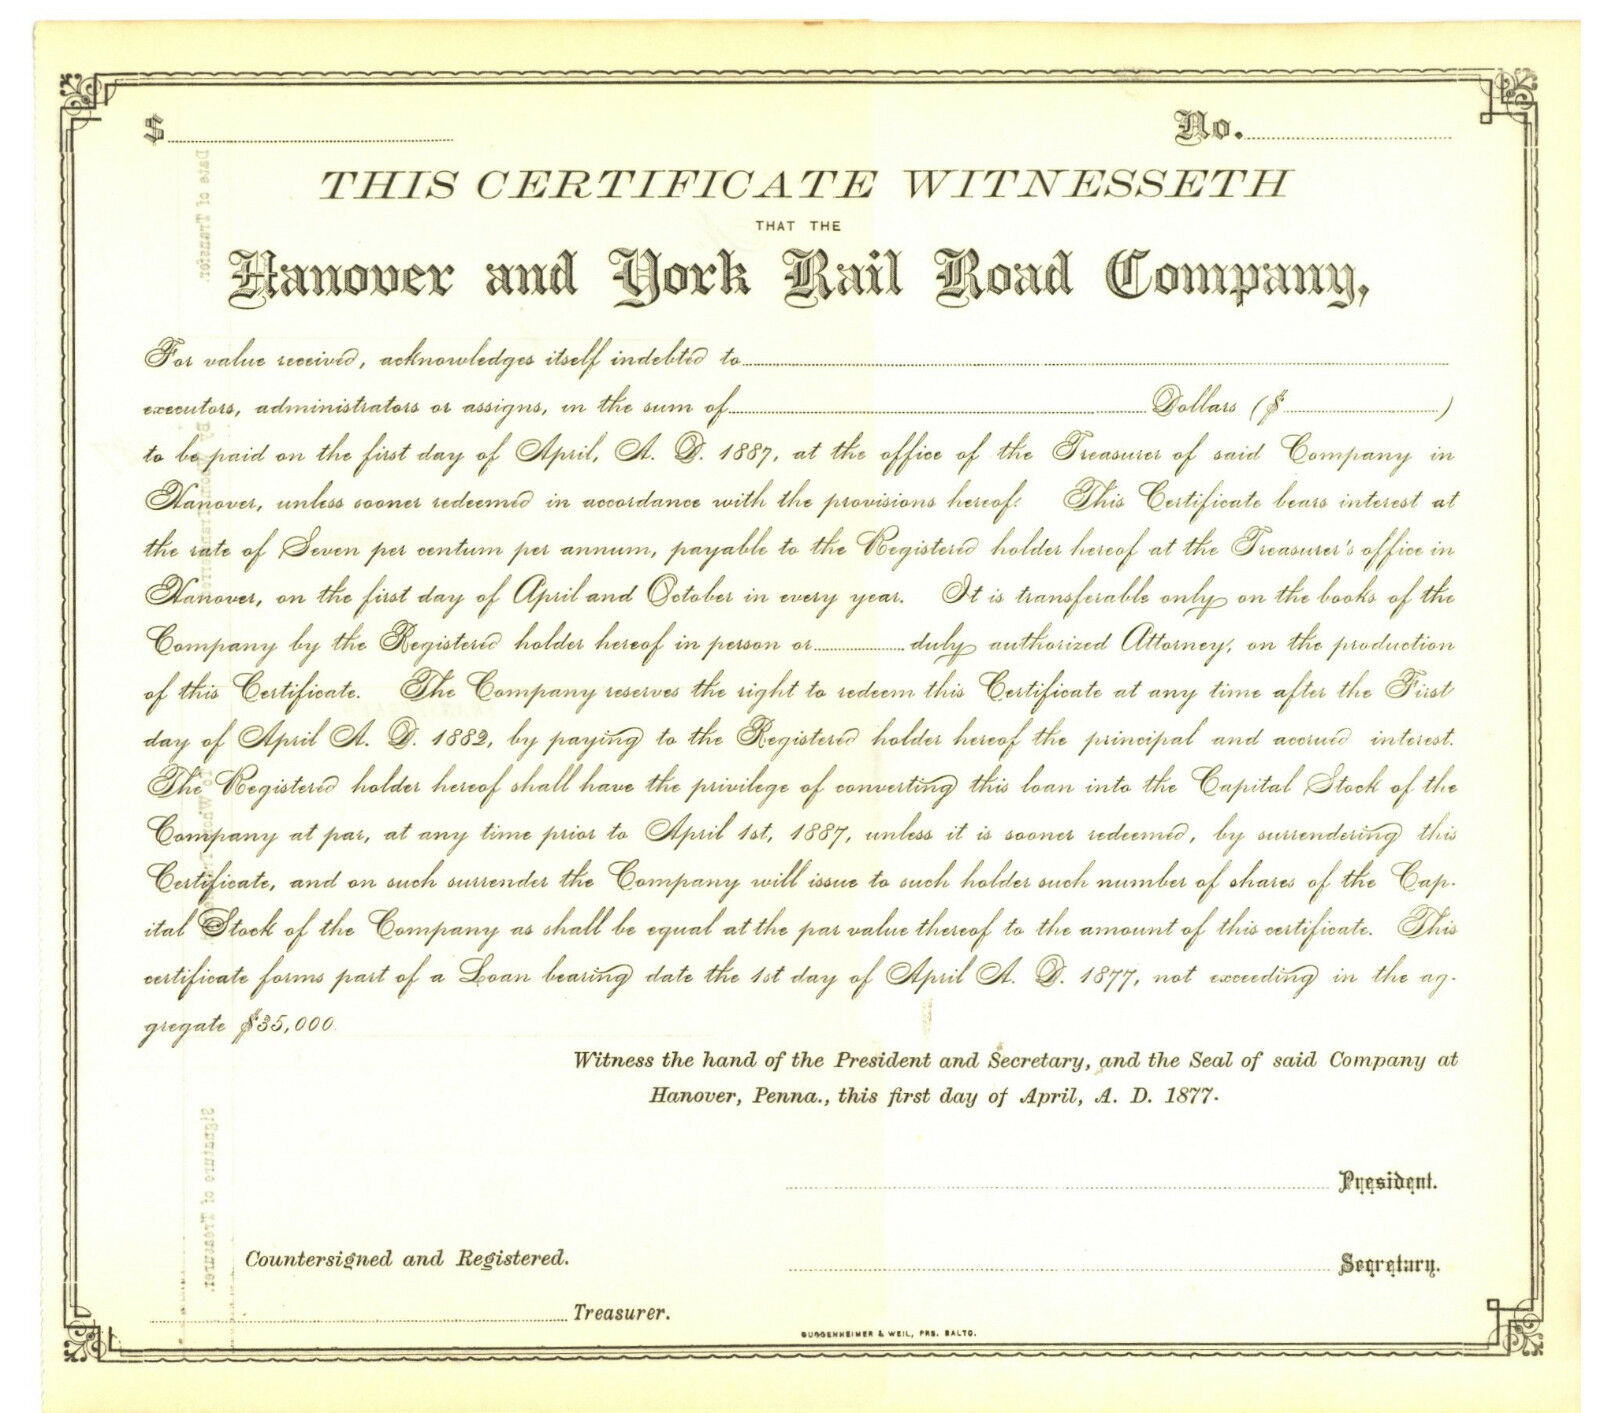 $ No.
THIS CERTIFICATE WITNESSETH
THAT THE
Hanover and York Rail Road Company,
For value received, acknowledges itself indebted to
executors, administrators or assigns, in the sum of Dollars ($ )
to be paid on the first day of April, A. D. 1887, at the office of the Treasurer of said Company in
Hanover, unless sooner redeemed in accordance with the provisions hereof: This Certificate bears interest at
the rate of Seven per centum per annum, payable to the Registered holder hereof at the Treasurer's office in
Hanover, on the first day of April and October in every year. It is transferable only on the books of the
Company by the Registered holder hereof in person or duly authorized Attorney, on the production
of this Certificate. The Company reserves the right to redeem this Certificate at any time after the First
day of April A. D. 1882, by paying to the Registered holder hereof the principal and accrued interest.
The Registered holder hereof shall have the privilege of converting this loan into the Capital Stock of the
Company at par, at any time prior to April 1st, 1887, unless it is sooner redeemed, by surrendering this
Certificate, and on such surrender the Company will issue to such holder such number of shares of the Cap-
ital Stock of the Company as shall be equal at the par value thereof to the amount of this certificate. This
certificate forms part of a Loan bearing date the 1st day of April A. D. 1877, not exceeding in the ag-
gregate $35,000.
Witness the hand of the President and Secretary, and the Seal of said Company at
Hanover, Penna., this first day of April, A. D. 1877.
President.
Countersigned and Registered.
Secretary.
Treasurer.
GUGGENHEIMER & WEIL, PRS. BALTO.
Date of Transfer.
Signature of Treasurer.